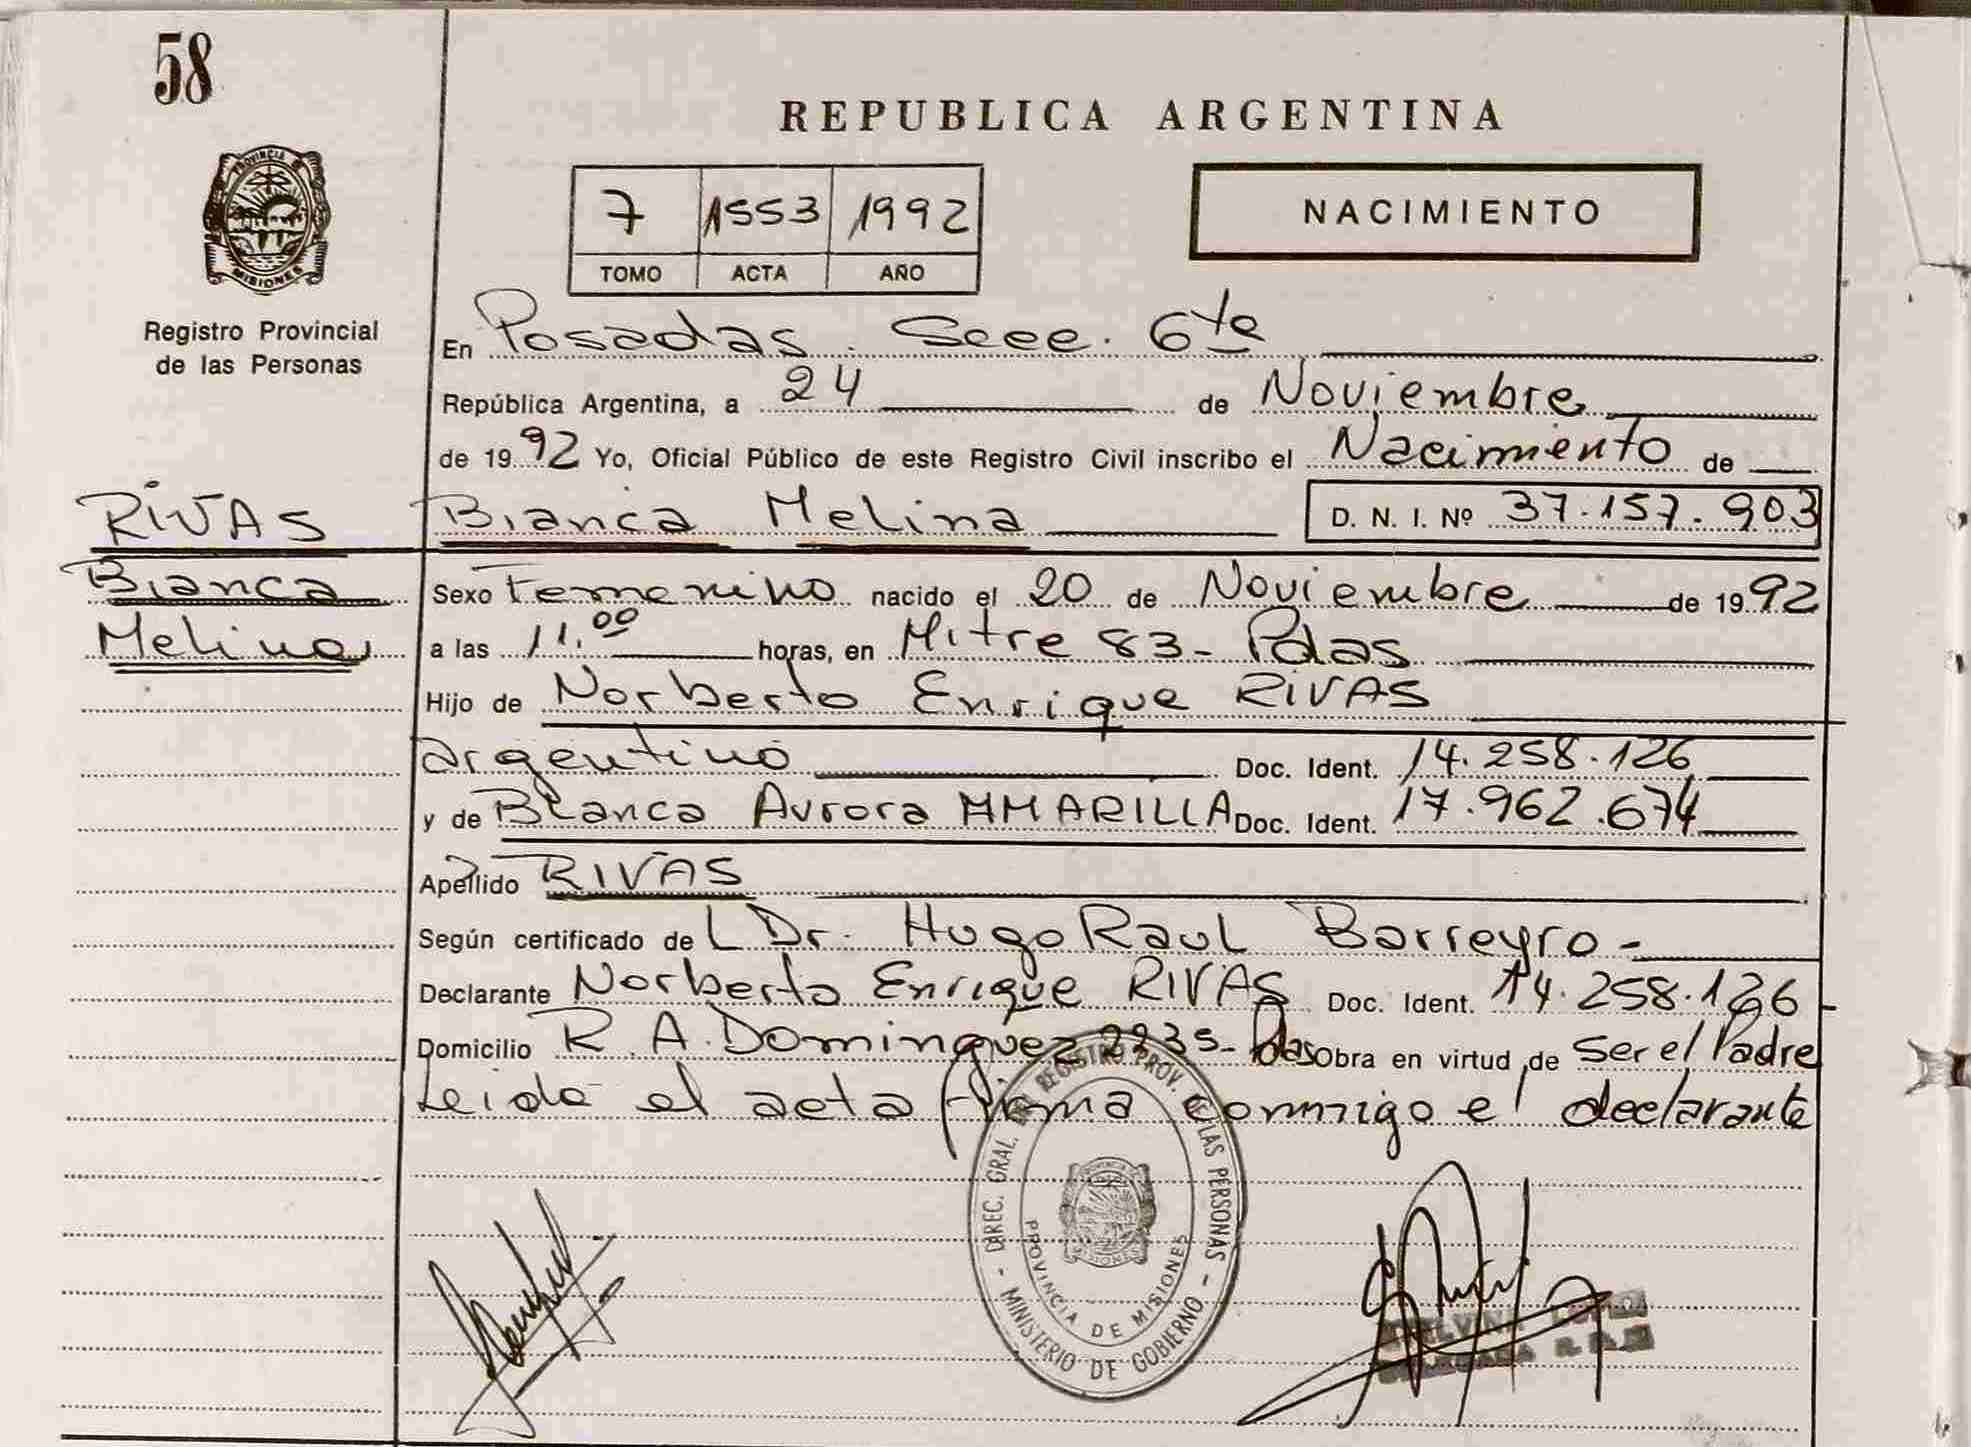 58
REPUBLICA ARGENTINA
PROVINCIA DE
MISIONES
Registro Provincial
de las Personas
7 1553 1992
TOMO ACTA AÑO
NACIMIENTO
En Posadas. Secc. 6ta
República Argentina, a 24 de Noviembre
de 1992 Yo, Oficial Público de este Registro Civil inscribo el Nacimiento de
RIVAS Bianca Melina D. N. I. Nº 37.157.903
Bianca Sexo Femenino nacido el 20 de Noviembre de 1992
Melina a las 11.00 horas, en Mitre 83- Pdas
Hijo de Norberto Enrique RIVAS
argentino Doc. Ident. 14.258.126
y de Blanca Aurora MMARILLA Doc. Ident. 17.962.674
Apellido RIVAS
Según certificado de L Dr. Hugo Raul Barreyro-
Declarante Norberto Enrique RIVAS Doc. Ident. 14.258.126
Domicilio R. A. Dominguez 2235- Pdas Obra en virtud de ser el Padre
Leida el acta firma conmigo el declarante
DIREC. GRAL. DEL REGISTRO PROV. DE LAS PERSONAS - MINISTERIO DE GOBIERNO -
PROVINCIA DE MISIONES